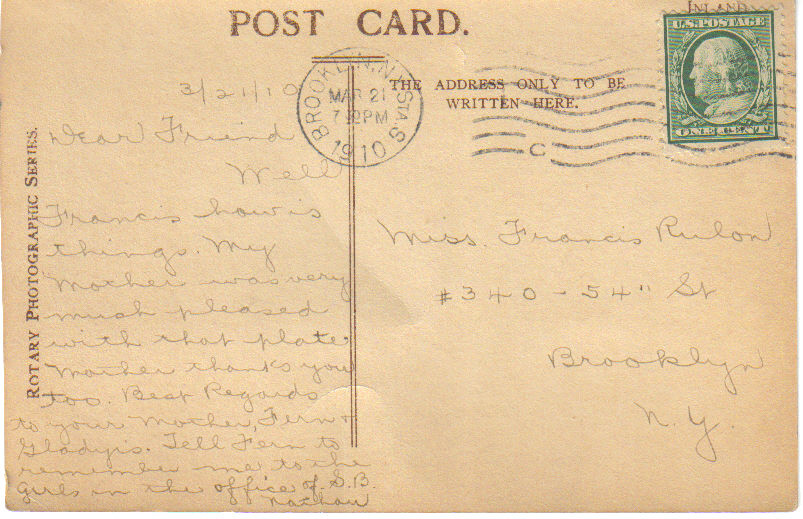 POST CARD.
INLAND
U.S. POSTAGE
ONE CENT
BROOKLYN, N.Y. STA S
MAR 21
7 PM
1910
C
THE ADDRESS ONLY TO BE
WRITTEN HERE.
ROTARY PHOTOGRAPHIC SERIES.
3/21/10
Dear Friend
Well
Francis how is
things. My
Mother was very
much pleased
with that plate
Mother thanks you
too. Best Regards
to your Mother, Fern &
Gladyis. Tell Fern to
remember me to the
girls in the office of S.B.
Nathan
Miss. Francis Rulon
#340 - 54" St
Brooklyn
N.Y.